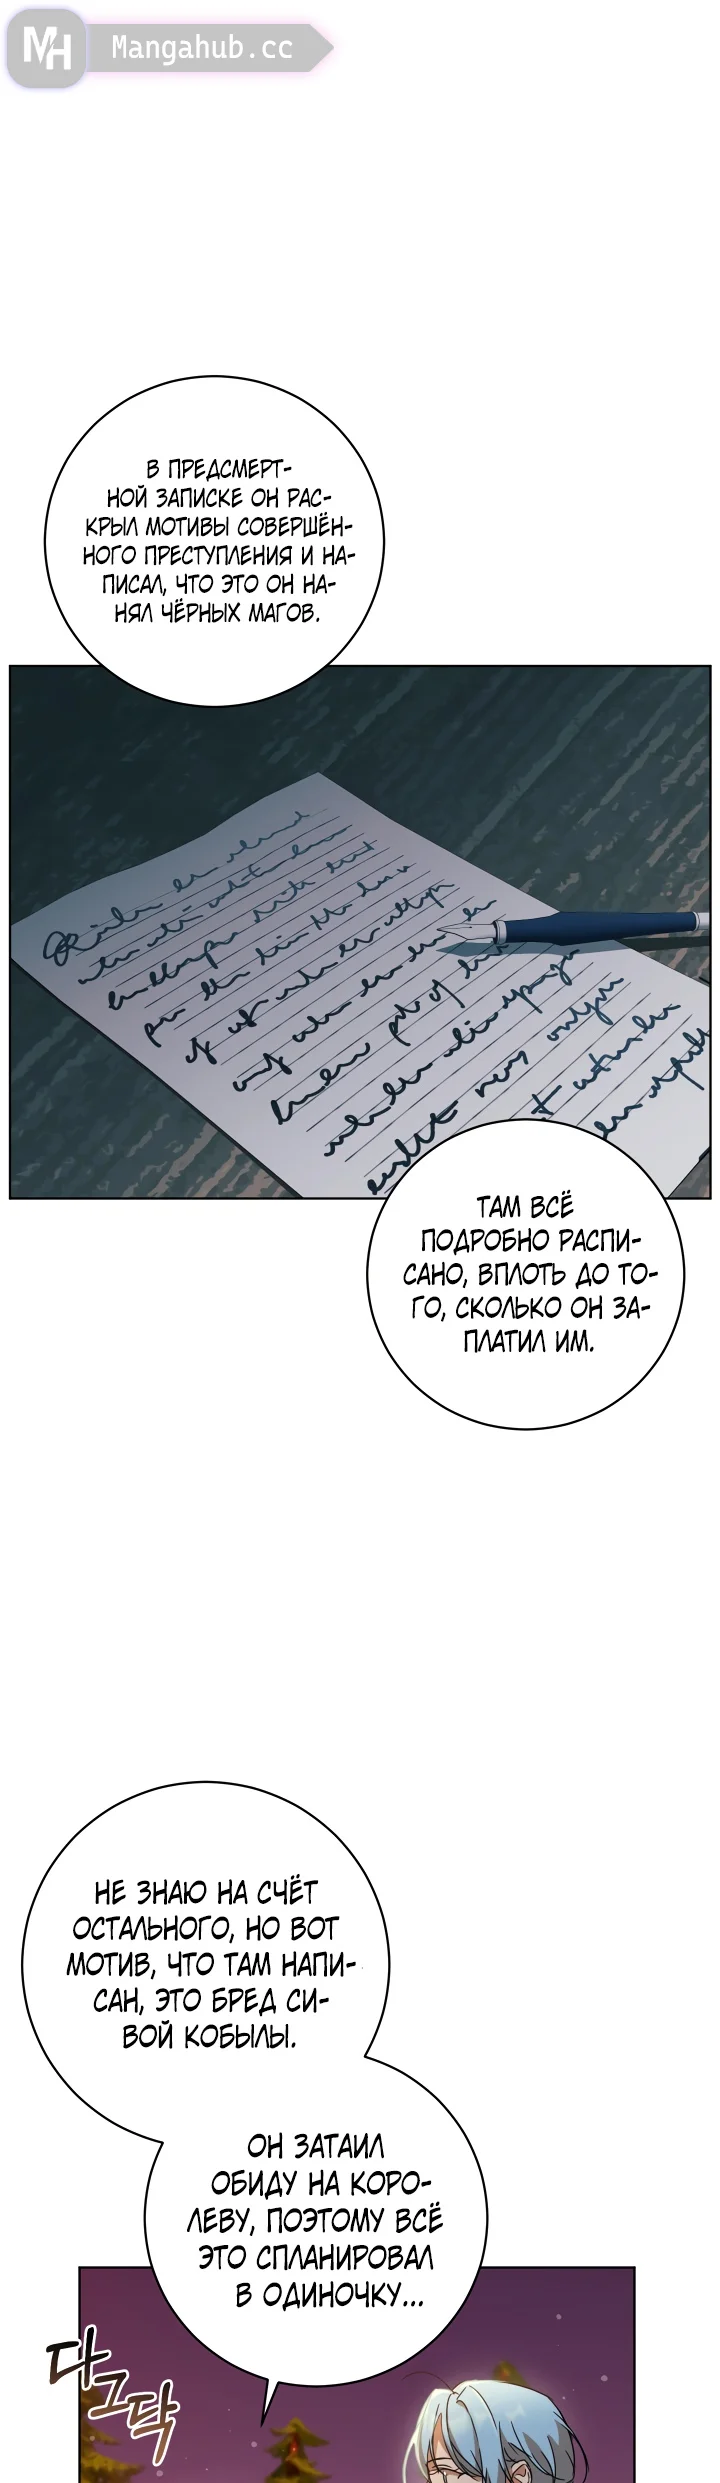 MH Mangahub.cc
В ПРЕДСМЕРТ-
НОЙ ЗАПИСКЕ ОН РАС-
КРЫЛ МОТИВЫ СОВЕРШЁН-
НОГО ПРЕСТУПЛЕНИЯ И НА-
ПИСАЛ, ЧТО ЭТО ОН НА-
НЯЛ ЧЁРНЫХ МАГОВ.
ТАМ ВСЁ
ПОДРОБНО РАСПИ-
САНО, ВПЛОТЬ ДО ТО-
ГО, СКОЛЬКО ОН ЗА-
ПЛАТИЛ ИМ.
НЕ ЗНАЮ НА СЧЁТ
ОСТАЛЬНОГО, НО ВОТ
МОТИВ, ЧТО ТАМ НАПИ-
САН, ЭТО БРЕД СИ-
ВОЙ КОБЫЛЫ.
ОН ЗАТАИЛ
ОБИДУ НА КОРО-
ЛЕВУ, ПОЭТОМУ ВСЁ
ЭТО СПЛАНИРОВАЛ
В ОДИНОЧКУ...
다그닥